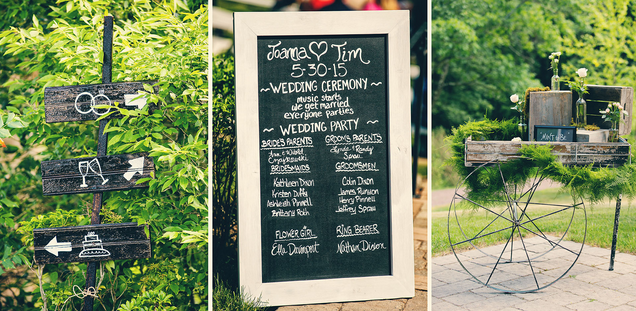 Joanna ♡ Tim
5·30·15
~WEDDING CEREMONY~
music starts
we get married
everyone parties
~ WEDDING PARTY ~
BRIDES PARENTS GROOMS PARENTS
Lynde & Randy
Spraw
BRIDESMAIDS GROOMSMEN
Kathleen Dixon Colin Dixon
Kristen Duffy James Runion
Ashleigh Pinnell Henry Pinnell
Brittany Roth Jeffrey Spraw
FLOWER GIRL RING BEARER
Ella Davenport Nathan Dixion